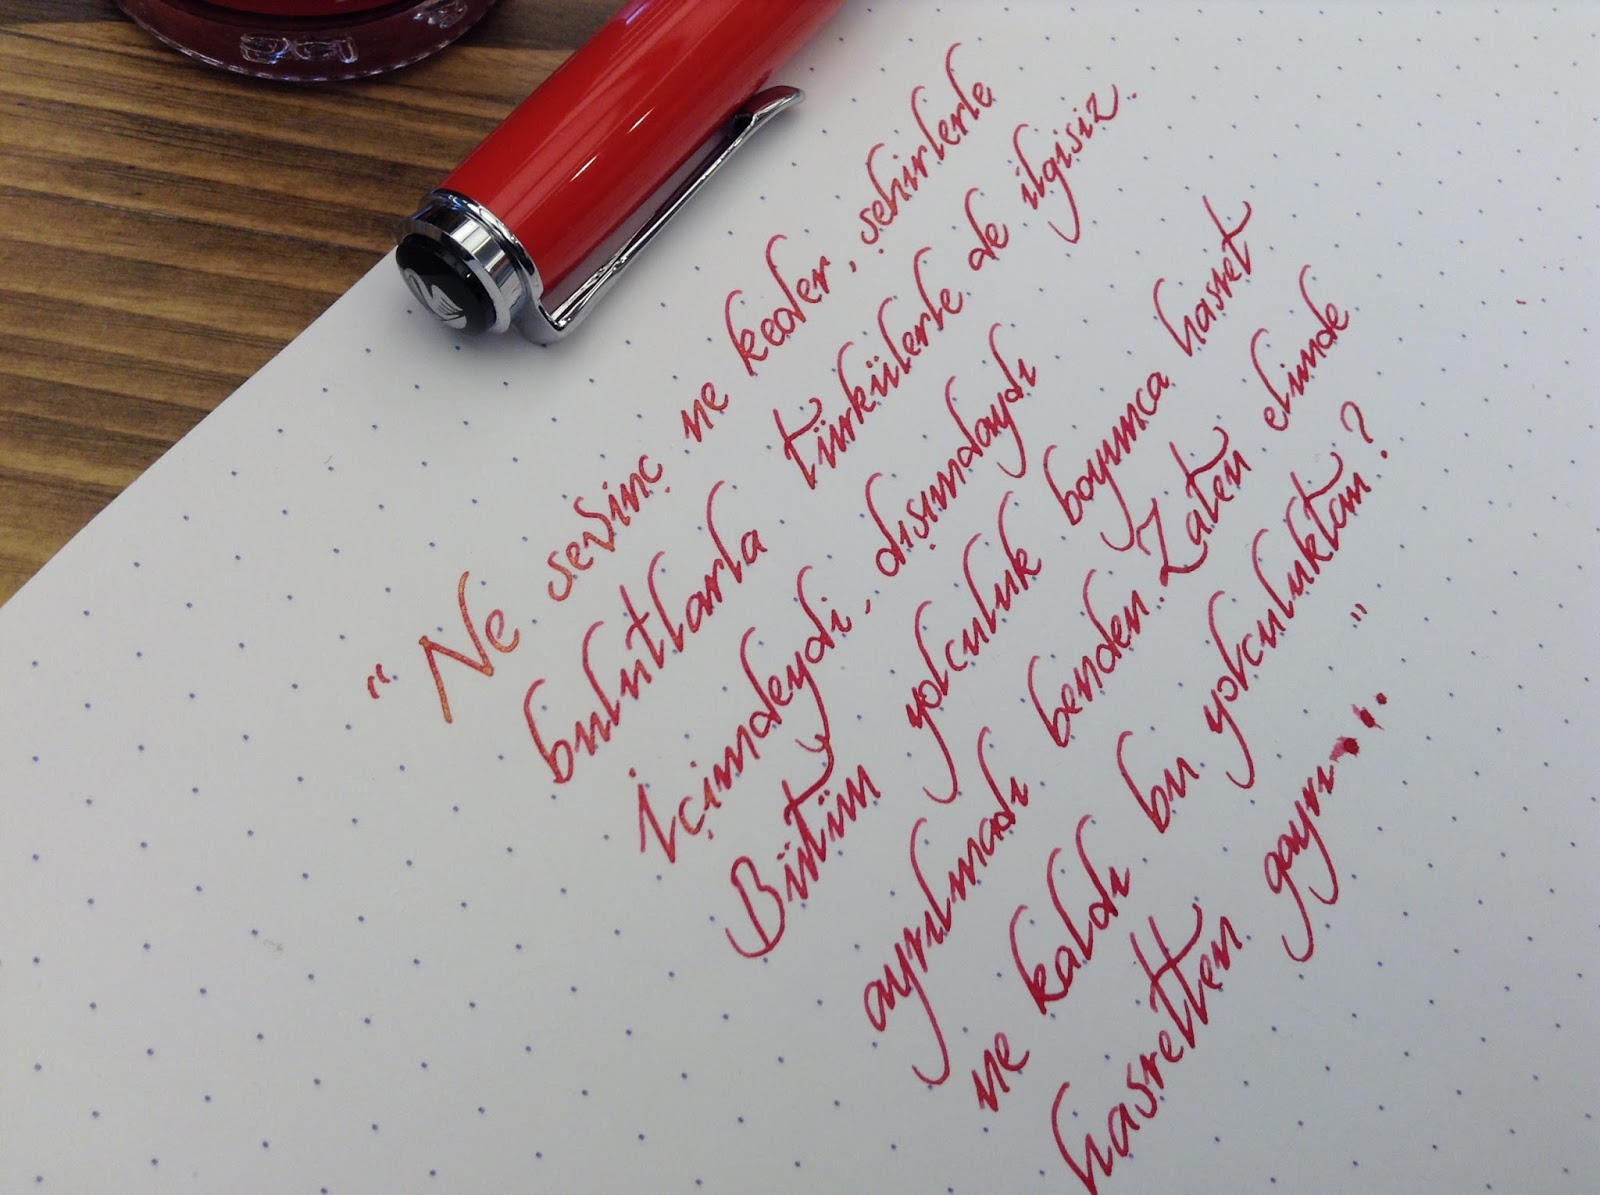 “ Ne sevinç ne keder, şehirlerle
bulutlarla türkülerle de ilgisiz.
İçimdeydi, dışımdaydı
Bütün yolculuk boyunca hasret
ayrılmadı benden. Zaten elimde
ne kaldı bu yolculuktan?
hasretten gayrı... ”